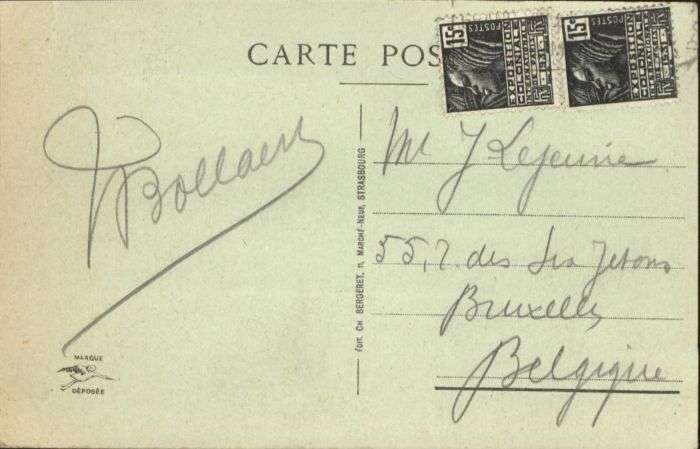 CARTE POS
15c POSTES EXPOSITION COLONIALE INTERNATIONALE PARIS 1931
15c POSTES EXPOSITION COLONIALE INTERNATIONALE PARIS 1931
Bollaert
Mr J Lejeune
55, r. des Six Jetons
Bruxelles
Belgique
ÉDIT. CH. BERGERET, MARCHÉ-NEUF, STRASBOURG
MARQUE
DÉPOSÉE